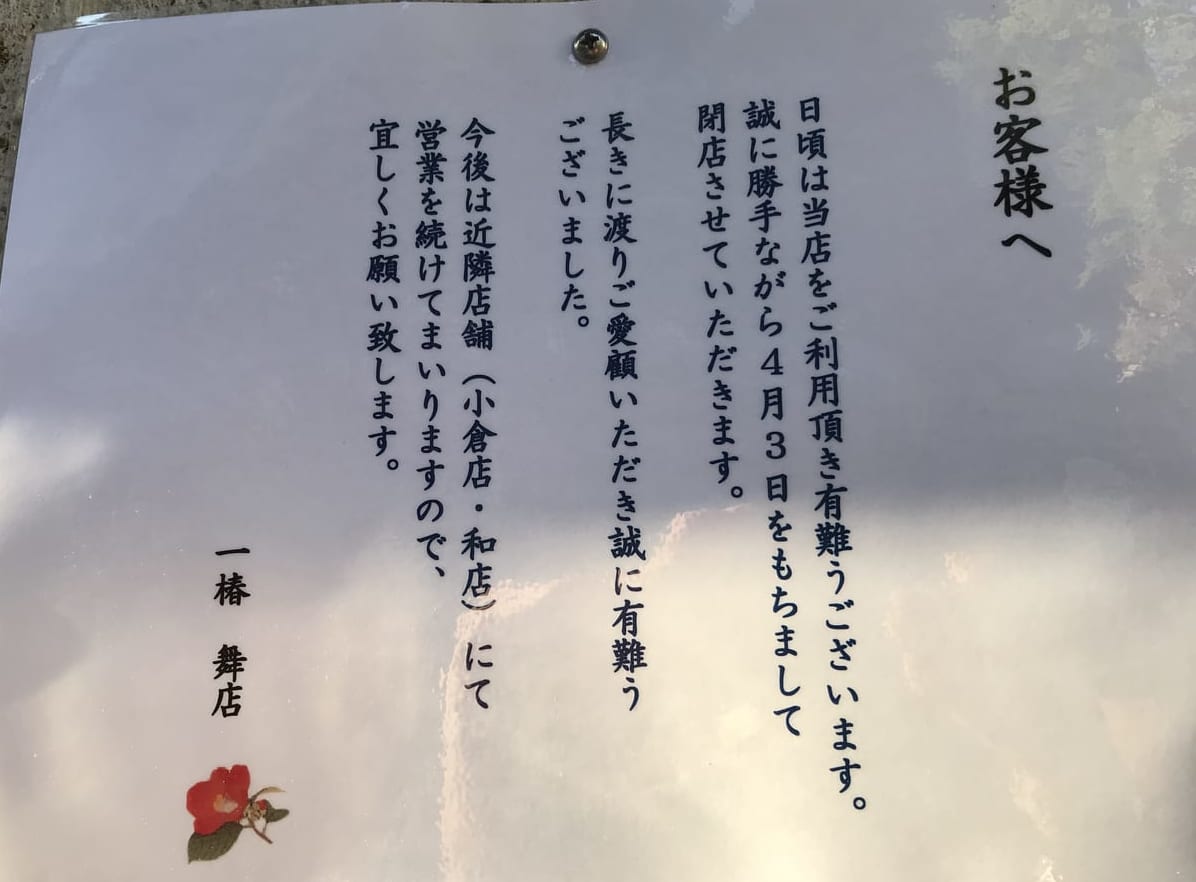 お客様へ
日頃は当店をご利用頂き有難うございます。
誠に勝手ながら４月３日をもちまして
閉店させていただきます。
長きに渡りご愛顧いただき誠に有難う
ございました。
今後は近隣店舗（小倉店・和店）にて
営業を続けてまいりますので、
宜しくお願い致します。
一椿　舞店